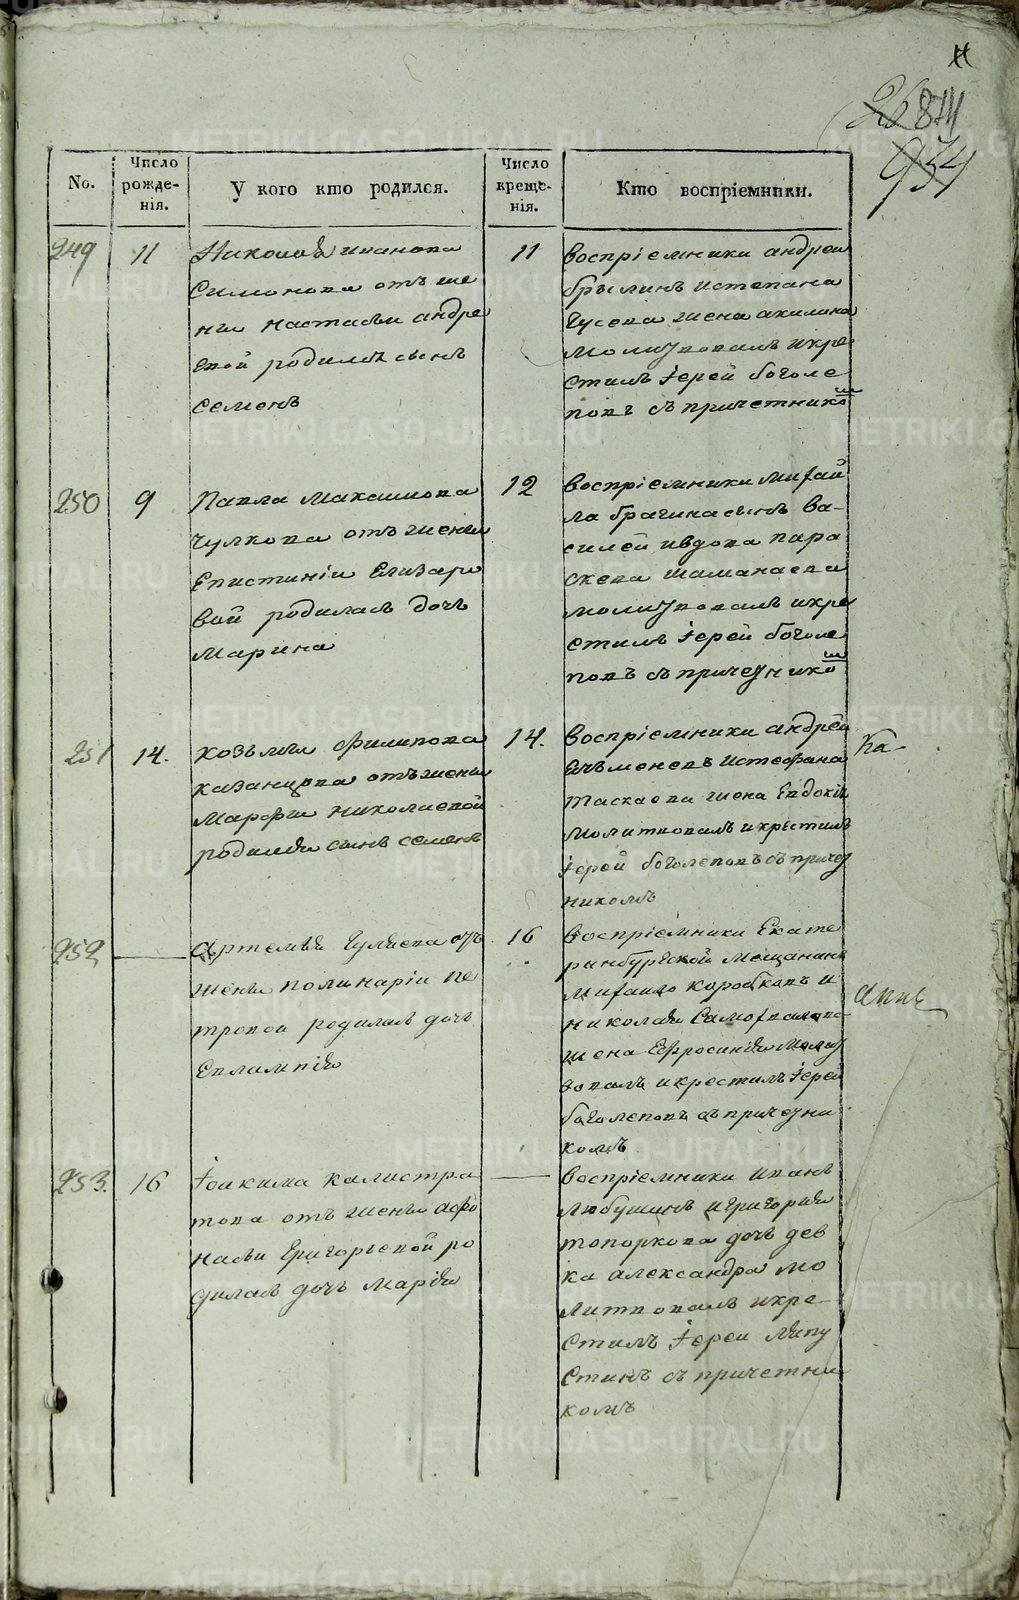 11
26 871
934
No.
Число рожде-нія.
У кого кто родился.
Число креще-нія.
Кто воспріемники.
249
11
Николая иванова
Симонова отъ же
ны настасьи андре
евой родился сынъ
семенъ
11
воспріемники андреи
брылинъ истепана
гусева жена акилина
молитвовалъ икре
стилъ іерей боголе
повъ съ причетнико
250
9
Павла Максимова
чулкова отъ жены
Епистиніи Елизаро
вой родилась дочь
Марина
12
воспріемники михаи
ла брагина сынъ ва-
силей ивдова пара
скева шаманаева
молитвовалъ икре
стилъ іерей боголе
повъ съ причетнико
251
14.
козьмы филипова
казанцова отъ жены
Марфы николаевой
родился сынъ семенъ
14.
воспріемники андрей
истефана
таскаева жена Евдокія
молитвовалъ икрестилъ
іерей боголеповъ съ причет
никомъ
Ка-
252
Артемья гуляева отъ
жены полинаріи пе
тровои родилась дочь
Евлампія
16
воспріемники Екате
ринбургской мещанинъ
Михаило коробковъ и
николая Самохвалова
жена Ефросинія молит
вовалъ икрестилъ іерей
боголеповъ съ причетни
комъ
Анне
253.
16
іоакима калистра
това отъ жены афо
насьи григорьевой ро
дилась дочь марія
воспріемники иванъ
любушинъ игригорія
топоркова дочь дев
ка александра мо
литвовалъ икре-
стилъ іереи ляпу
стинъ съ причетни
комъ
METRIKI.GASO-URAL.RU